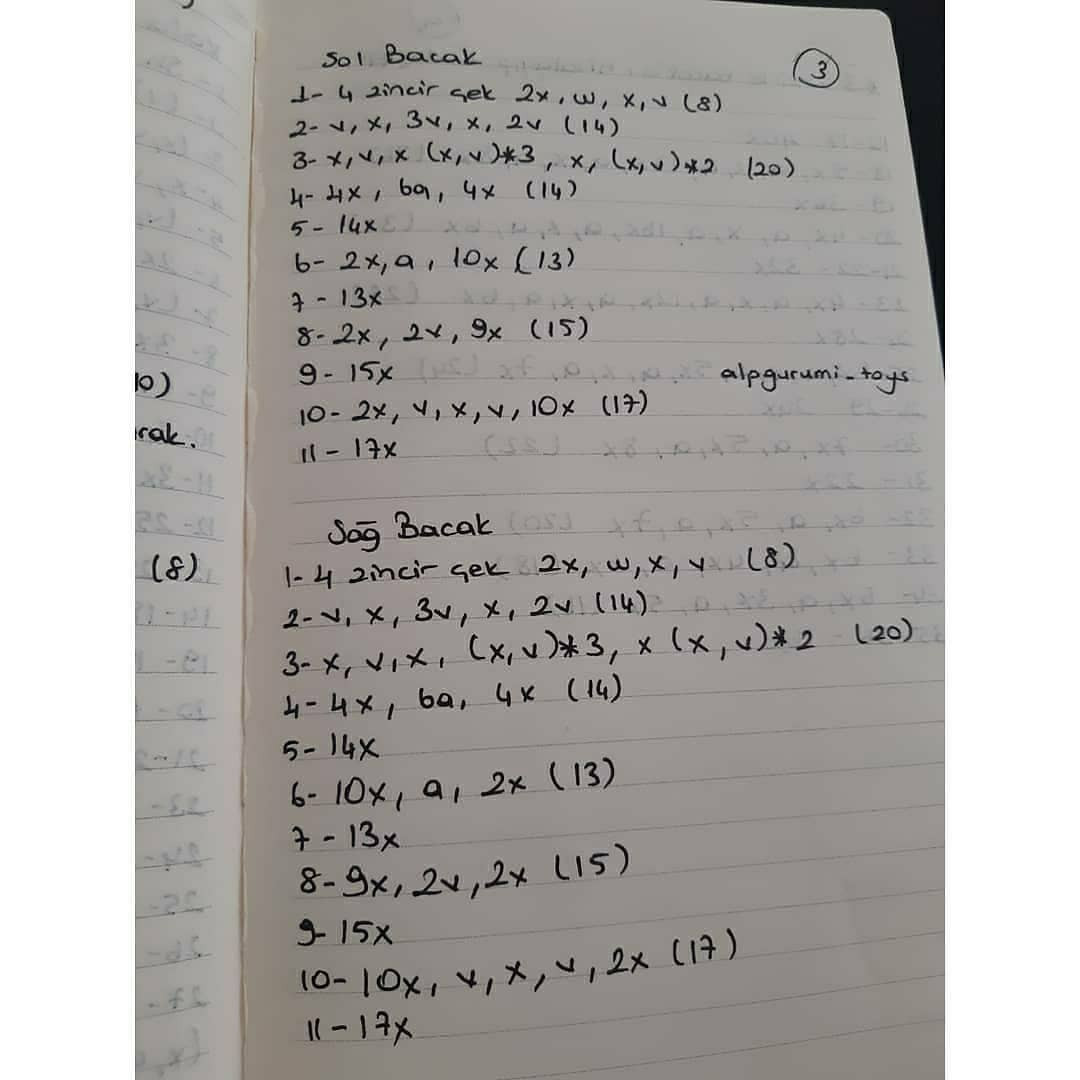 Sol Bacak
3
1- 4 zincir çek 2x, w, x, v (8)
2- v, x, 3v, x, 2v (14)
3- x, v, x (x, v)*3, x, (x, v)*2 (20)
4- 4x, 6a, 4x (14)
5- 14x
6- 2x, a, 10x (13)
7- 13x
8- 2x, 2v, 9x (15)
9- 15x
alpgurumi-toys
10- 2x, v, x, v, 10x (17)
11- 17x
Sağ Bacak
1- 4 zincir çek 2x, w, x, v (8)
2- v, x, 3v, x, 2v (14)
3- x, v, x, (x, v)*3, x (x, v)*2 (20)
4- 4x, 6a, 4x (14)
5- 14x
6- 10x, a, 2x (13)
7- 13x
8- 9x, 2v, 2x (15)
9- 15x
10- 10x, v, x, v, 2x (17)
11- 17x
(8)